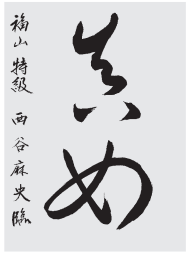 真如
福山 特級 西谷麻史臨